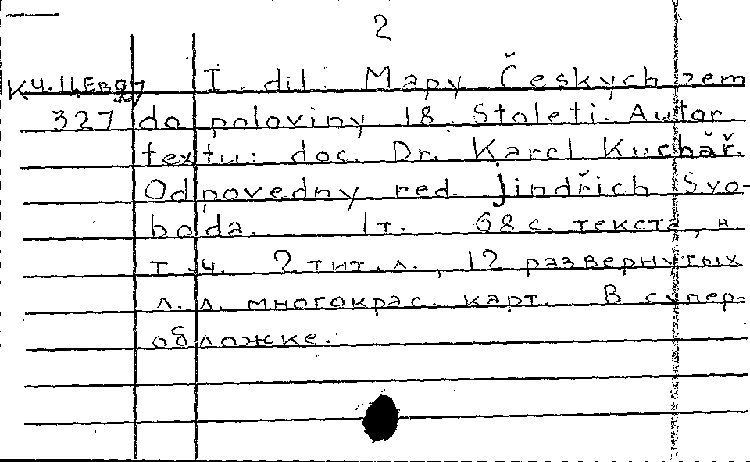 2
Кч. Ц.Евр7 I. dil. Mapy Českych zem
327 do poloviny 18. Stoleti. Autor
textu: doc. Dr. Karel Kuchář.
Odpovedny red. Jindřich Svo-
boda. 1 т. 68 с. текста, в
т.ч. 2 тит.л., 12 развернутых
л.л. многокрас. карт. В супер-
обложке.